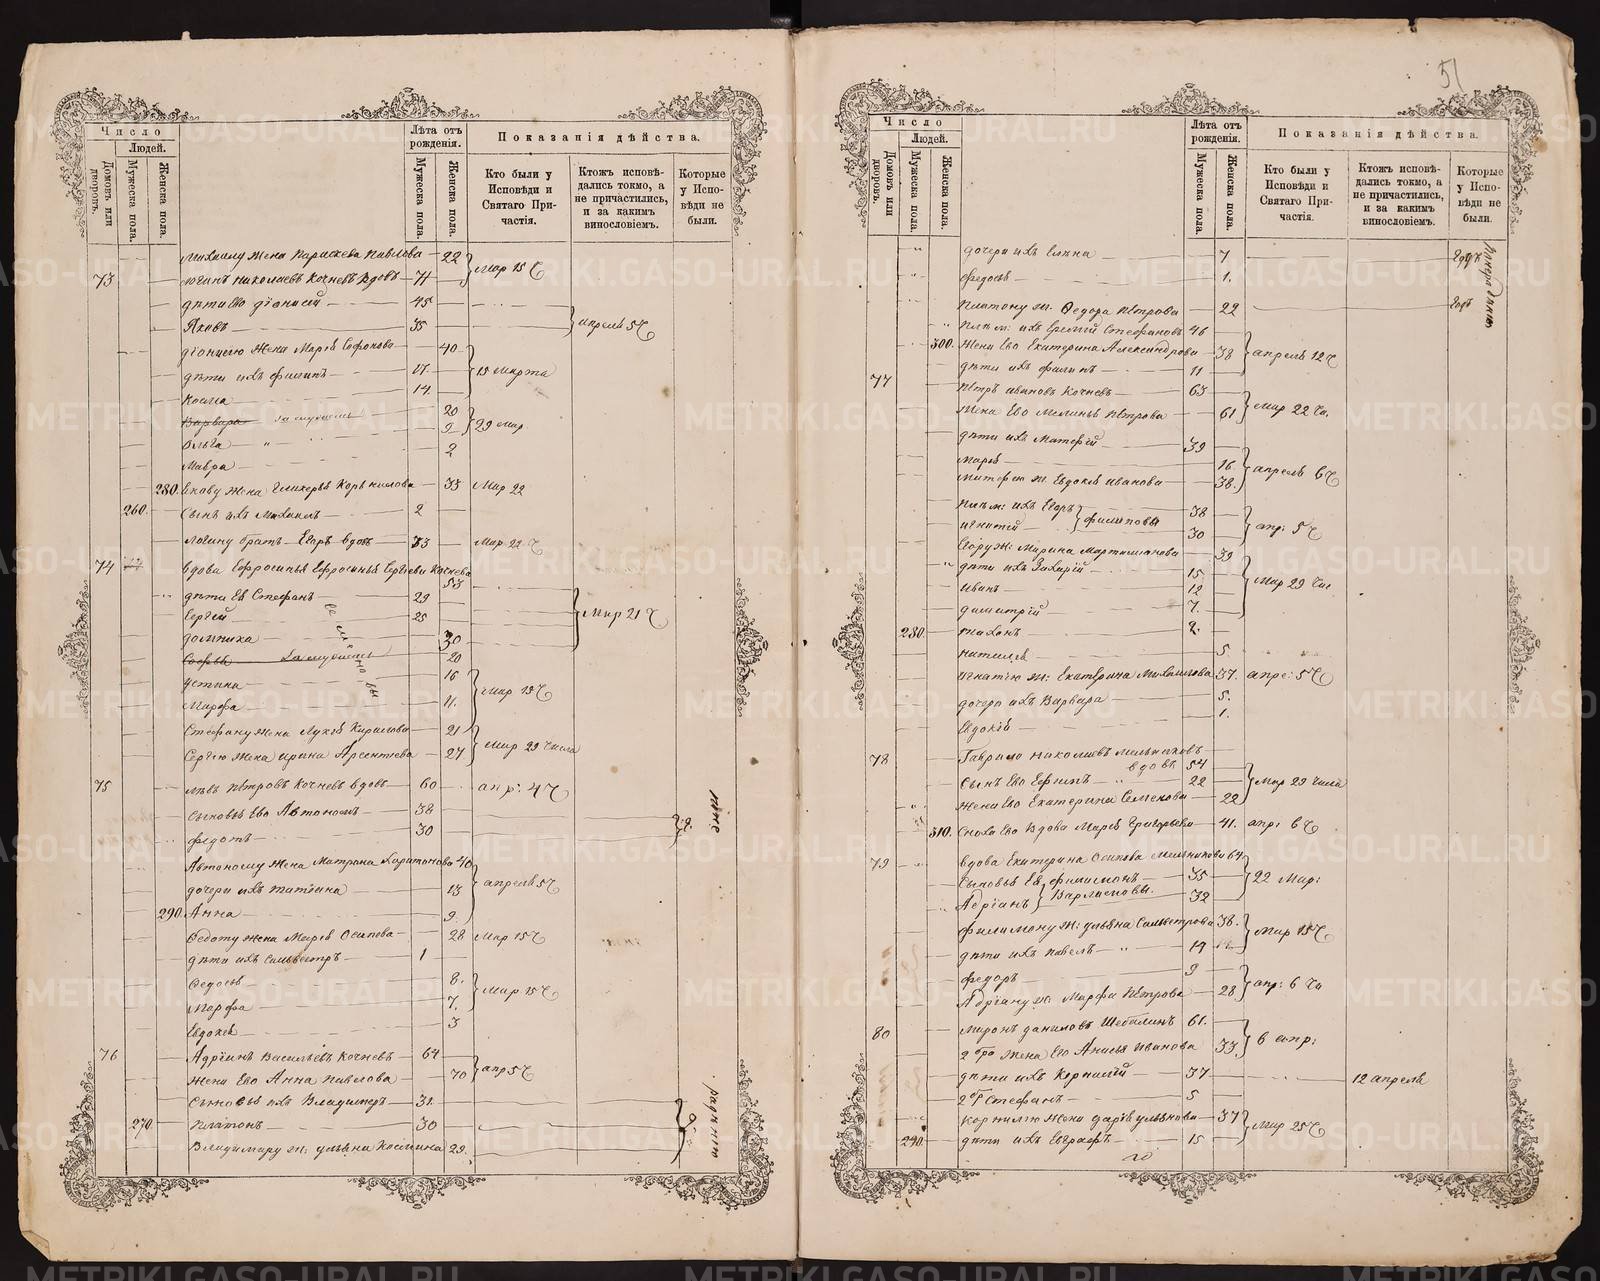 51
Число
Людей.
Домовъ или дворовъ.
Мужеска пола.
Женска пола.
Лѣта отъ рожденія.
Мужеска пола.
Женска пола.
Показанія дѣйства.
Кто были у Исповѣди и Святаго Причастія.
Ктожъ исповѣдались токмо, а не причастились, и за какимъ винословіемъ.
Которые у Исповѣди не были.
Михаилу жена Параскева Павлова 22
73 Логинъ Николаевъ Кочневъ вдовъ 71 Мар 15 Ч
дѣти Его Діонисій 45
Яковъ 35 апреля 5 Ч
Діонисію жена Марія Софонова 40
дѣти ихъ Филипъ 17 15 Марта
Косма 14
Варвара замужемъ 20
Ольга 9 29 мар
Мавра 2
280. Якову жена Гликерья Корнилова 33 Мар 22
260. Сынъ ихъ Михаилъ 2
Логину братъ Егоръ вдовъ 33 Мар 22 Ч
74 вдова Ефросинья Сергиева Кочнева 53
дѣти Ея Стефанъ 29
Сергій 25 Мар 21 Ч
Домника 30
Софья замужемъ 20
Устина 16
Марфа 11. Мар 15 Ч
Стефану жена Лукія Кирилова 21
Сергію жена Ирина Арсентиева 27 Мар 29 числа
75 Левъ Петровъ Кочневъ вдовъ 60 апр: 4 Ч
Сыновья Его Автономъ 38
Федотъ 30
Автоному жена Матрона Харитонова 40
дочери ихъ Татіана 13 апреля 5 Ч
290. Анна 9
Федоту жена Марія Осипова 28 Мар 15 Ч
дѣти ихъ Сильвестръ 1
Федосья 8.
Марфа 7. Мар 15 Ч
Евдокія 3
76 Адріанъ Васильевъ Кочневъ 64
Жена Его Анна Павлова 70 апр 5 Ч
Сыновья ихъ Владимеръ 31.
270. Платонъ 30
Владимиру ж: Ульяна Космина 29.
Число
Людей.
Домовъ или дворовъ.
Мужеска пола.
Женска пола.
Лѣта отъ рожденія.
Мужеска пола.
Женска пола.
Показанія дѣйства.
Кто были у Исповѣди и Святаго Причастія.
Ктожъ исповѣдались токмо, а не причастились, и за какимъ винословіемъ.
Которые у Исповѣди не были.
дочери ихъ Елена 7
Федосья 1.
Платону ж. Федора Петрова 22
Плем: ихъ Еремій Стефановъ 46
300. Жена Его Екатерина Александрова 38 апреля 12 Ч
дѣти ихъ Филипъ 11
77 Петръ Ивановъ Кочневъ 63
Жена Его Меланья Петрова 61 Мар 22 Чи.
дѣти ихъ Матфей 39
Марія 16. апреля 6 Ч
Матфею ж. Евдокія Иванова 38.
Плем: ихъ Егоръ Филиповы 38
Игнатій 30 апр: 5 Ч
Егору ж: Марина Мартимианова 39
дѣти ихъ Захарій 15
Иванъ 12 Мар 29 Чис
Димитрій 7.
280. Тихонъ 2.
Наталья 5
Игнатію ж: Екатерина Михаилова 37. апре: 5 Ч
дочери ихъ Варвара 5.
Евдокія 1.
78 Гаврило Николаевъ Мельниковъ вдовъ 54
Сынъ Его Ефимъ 22 Мар 29 Числа
Жена Его Екатерина Семенова 22
310. Сноха Его вдова Марія Григорьева 41. апр: 6 Ч
79 вдова Екатерина Осипова Мельникова 64
Сыновья Ея Филимонъ 35 22 Мар:
Адріанъ Варламовы. 32
Филимону ж: Ульяна Сильвестрова 38.
дѣти ихъ Павелъ 14 Мар 15 Ч
Федоръ 9
Адріану ж: Марфа Петрова 28 апр: 6 Чи
80 Миронъ Даниловъ Шебалинъ 61.
2 бра жена Его Анисья Иванова 33 6 апр:
дѣти ихъ Корнилій 37 12 апреля
2 бр Стефанъ 5
Корнилію жена Дарія Ульянова 37
290. дѣти ихъ Евграфъ 15 Мар 25 Ч
METRIKI.GASO-URAL.RU